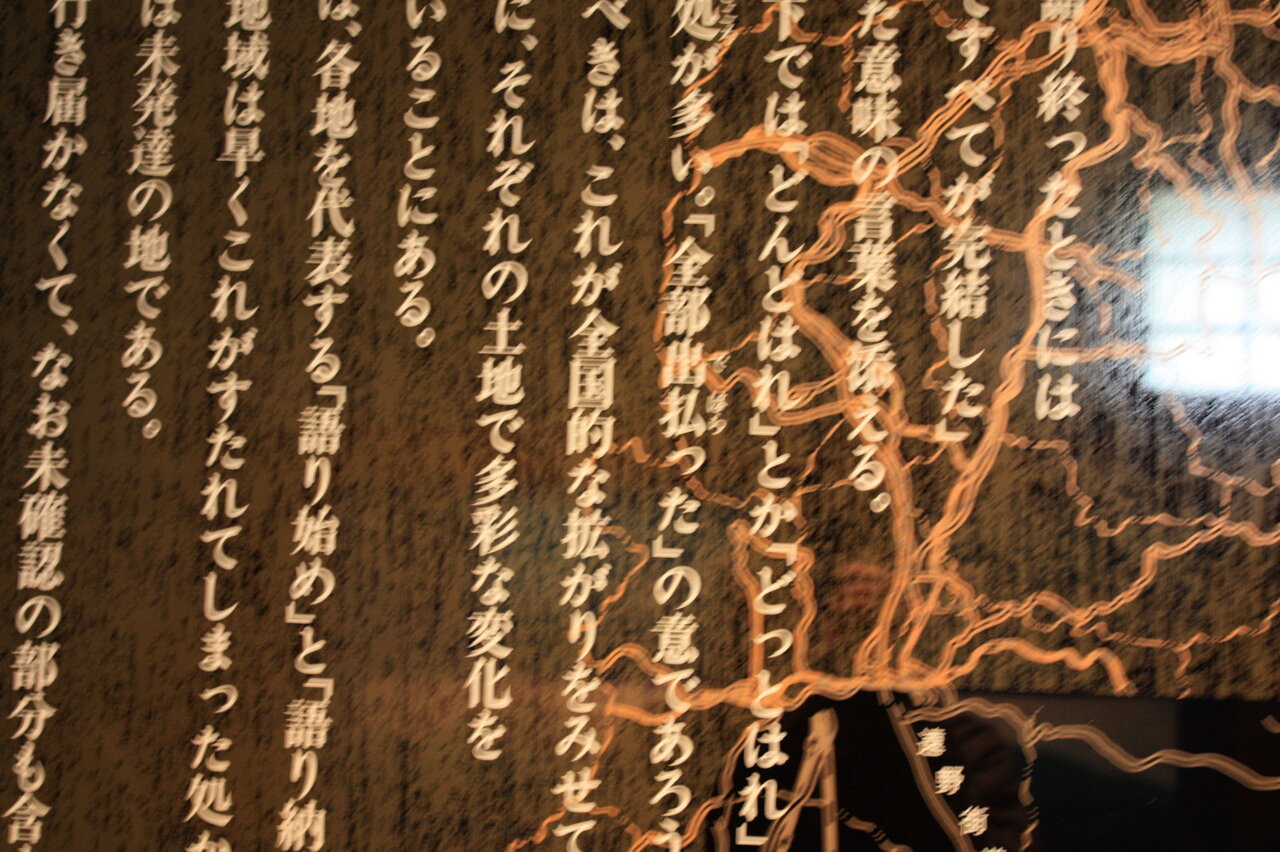 語り終ったときには
ですべてが完結した」
た意味の言葉を添える。
下では「どんとはれ」とか「どっとはれ」
処が多い。「全部出払った」の意であろう
ところ
ではら
べきは、これが全国的な拡がりをみせて
に、それぞれの土地で多彩な変化を
いることにある。
は、各地を代表する「語り始め」と「語り納
地域は早くこれがすたれてしまった処か
は未発達の地である。
行き届かなくて、なお未確認の部分も含